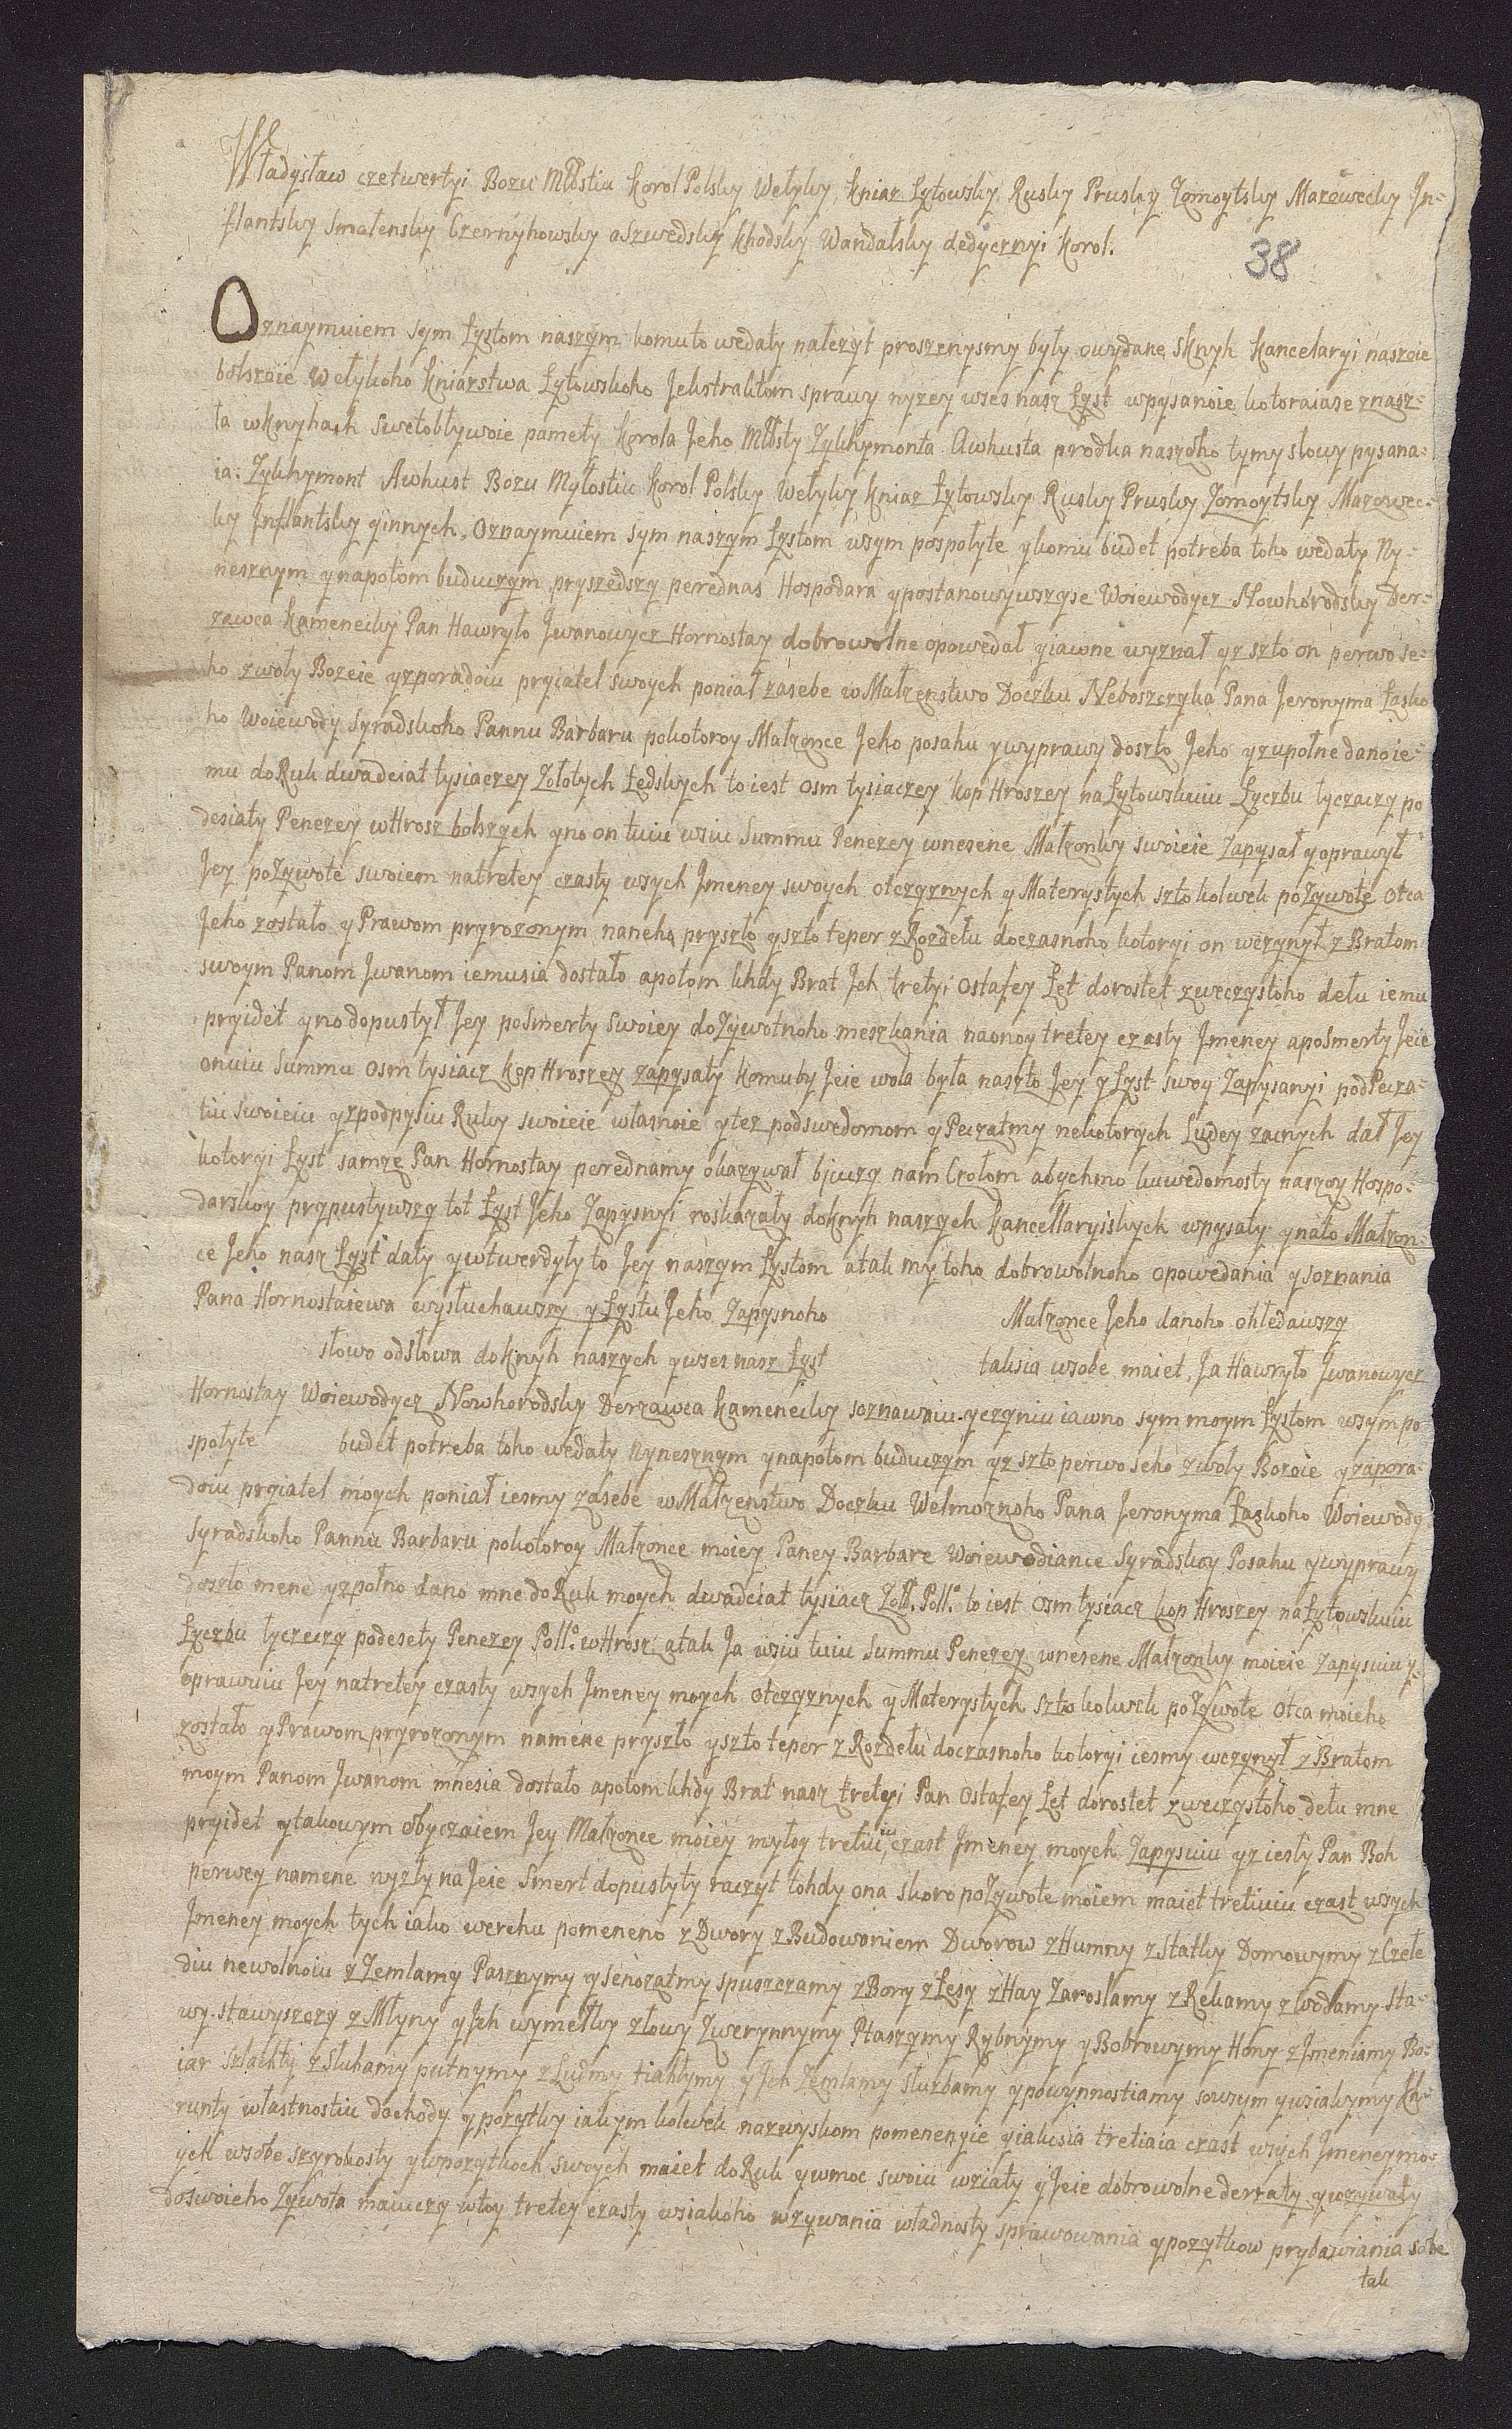 Władysław czetwertyi Bozu Młstiu Korol Polsky Wełyky, Kniaz Łytowsky, Rusky Prusky Zomoytsky Mazowecky In-
flantsky Smolensky Czernyhowsky a Szwedsky Khodsky Wandalsky dedycznyi Korol.
38
Oznaymuiem sym Łystom naszym komuto wedaty nałezyt proszenysmy były owydane sknyh Kancelaryi naszoie
bolszoie Wełykoho Kniazstwa Łytowskoho Jekstraktom sprawy nyzey wses nasz Łyst wpysanoie kotoraiase znasz-
ła wknyhach swetobływoie pamety Korola Jeho Młsty Zykhymonta Awhusta prodka naszoho tymy słowy pysana-
ia: Zykhymont Awhust Bozu Myłostiu Korol Polsky Wełyky Kniaz Łytowsky Rusky Prusky Zomoytsky Mazowec-
ky Inflantsky yinnych, Oznaymuiem sym naszym Łystom wsym pospołyte ykomu budet potreba toho wedaty Ny-
nesznym ynapotom buduczym, pryszedszy perednas Hospodara ypostanowywszyse Woiewodycz Nowhorodsky Der-
zawca Kamenecky Pan Hawryło Jwanowycz Hornostay dobrowolne opowedał yiawne wyznał yz szto on perwo se-
ho zwoły Bozeie yzporadoiu pryiatel swoych poniał zasebe w Małzenstwo Doczku Neboszczyka Pana Jeronyma Łasko
ho Woiewody Syradskoho Pannu Barbaru pokotoroy Małzonce Jeho posahu ywyprawy doszło Jeho yzupołne dano ie-
mu do Ruk dwadciat tysiaczey Zołotych Łedskych to iest osm tysiaczey kop Hroszey na Łytowskuiu Łyczbu łyczaczy po
desiaty Penezey wHrosz bolszych yno on tuiu wsiu Summu Penezey wnesene Małzonky swoieie Zapysał yoprawył
Jey poZywote swoiem natretey czasty wsych Jmeney swoych otczyznych y Materystych szto kolwek poZywote Otca
Jeho zostało y Prawom pryrozonym naneho pryszło yszto teper z Rozdełu doczasnoho kotoryi on wczynył z Bratom
swoym Panom Jwanom iemusia dostało apotom khdy Brat Jch tretyi Ostafey Łet dorostet zweczystoho dełu iemu
pryidet yno dopustył Jey poSmerty swoiey doZywotnoho meszkania naonoy tretey czasty Jmeney apoSmerty Jeie
onuiu Summu osm tysiacz kop Hroszey zapysaty komuby Jeie wola była naszto Jey y Łyst swoy Zapysanyi pod Pecza-
tiu swoieiu yzpodpysiu Ruky swoieie własnoie ytez podswedomom y Peczatmy nekotorych Ludey zacnych dał Jey
kotoryi Łyst samze Pan Hornostay perednamy okazywał bjuczy nam Czołom abychmo kuwedomosty naszoy Hospo-
darskoy prypustywszy tot Łyst Jeho Zapysnyi roskazaly doKnyh naszych Kancellaryiskych wpysaty ynato Małzon-
ce Jeho nasz Łyst dały ywtwerdyły to Jey naszym Łystom atak my toho dobrowolnoho opowedania ysoznania
Pana Hornostaiewa wysłuchawszy y Łystu Jeho Zapysnoho Małzonce Jeho danoho ohledawszy
słowo odsłowa doKnyh naszych ywses nasz Łyst taksia wsobe maiet, Ja Hawryło Jwanowycz
Hornostay Woiewodycz Nowhorodsky Derzawca Kamenecky soznawaiu yczyniu iawno sym moym Łystom wsym po
społyte budet potreba toho wedaty Nynesznym ynapotom buduczym yz szto perwo seho zwoły Bozoie yzapora-
doiu pryiatel moych poniał iesmy zasebe w Małzenstwo Doczku Welmoznoho Pana Jeronyma Łaskoho Woiewody
Syradskoho Pannu Barbaru pokotoroy Małzonce moiey Paney Barbare Woiewodiance Syradskoy Posahu ywyprawy
doszło mene yzpołno dano mne do Ruk moych dwadciat tysiacz Zołł. Poll. to iest osm tysiacz kop Hroszey na Łytowskuiu
Łyczbu łyczeczy podesety Penezey Poll. wHrosz atak Ja wsiu tuiu Summu Penezey wnesene Małzonky moieie Zapysuiu y-
oprawuiu Jey natretey czasty wsych Jmeney moych otczyznych y Materystych szto kolwek poZywote Otca moieho
zostało y Prawom pryrozonym namene pryszło yszto teper z Rozdełu doczasnoho kotoryi iesmy wczynył z Bratom
moym Panom Jwanom mnesia dostało apotom khdy Brat nasz tretyi Pan Ostafey Łet dorostet zweczystoho dełu mne
pryidet ytakowym obyczaiem Jey Małzonce moiey myłoy tretiuiu czast Jmeney moych Zapysuiu yz iesły Pan Boh
perwey namene nyzły na Jeie Smert dopustyty raczyt tohdy ona skoro poZywote moiem maiet tretiuiu czast wsych
Jmeney moych tych iako werchu pomeneno z Dwory z Budowaniem Dworow z Humny z Statky Domowymy z Czele
diu newolnoiu z Zemlamy Pasznymy ySenozatmy spuszczamy z Bory z Łesy z Hay Zaroslamy z Rekamy z wodamy Sta-
wy Stawyszczy z Młyny y Jch wymełky złowy Zwerynnymy Ptaszymy Rybnymy y Bobrowymy Hony z Jmeniamy Bo-
iar Szlachty z Sluhamy putnymy z Ludmy tiahłymy y Jch Zemlamy słuzbamy ypowynnostiamy sowsym ywsiakymy Kh-
runty własnostiu dochody ypozytky iakym kolwek nazwyskom pomenenyie yiaksia tretiaia czast wsych Jmeney mo-
ych wsobe szyrokosty ywpozytkoch swoych maiet do Ruk ywmoc swoiu wziaty y Jeie dobrowolne derzaty ywzywaty
doswoieho Zywota maiuczy wtoy tretey czasty wsiakoho wzywania władnosty sprawowania ypozytkow prybawiania sobe
tak